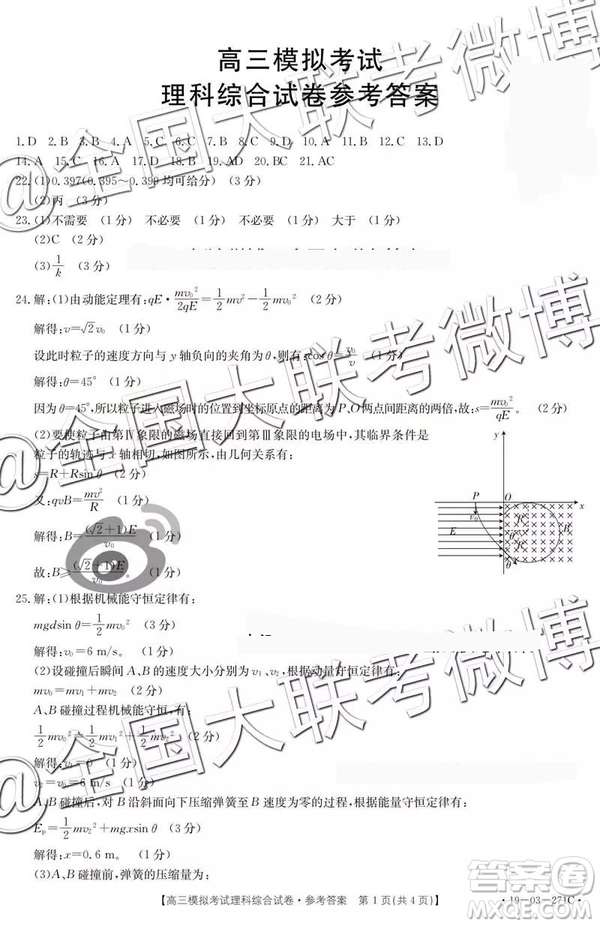 高三模拟考试
理科综合试卷参考答案
1.D 2.B 3.B 4.A 5.C 6.C 7.B 8.A 9.C 10.A 11.B 12.C 13.D
14.A 15.C 16.A 17.D 18.B 19.AD 20.BC 21.AC
22.(1)0.397(0.395～0.399均可给分) (3分)
(2)丙 (3分)
23.(1)不需要 (1分) 不必要 (1分) 不必要 (1分) 大于 (1分)
(2)C (2分)
(3)1/k (3分)
24.解:(1)由动能定理有:qE·mv₀²/2qE=1/2mv²-1/2mv₀² (2分)
解得:v=√2v₀ (1分)
设此时粒子的速度方向与y轴负向的夹角为θ,则有:cosθ=v₀/v (1分)
解得:θ=45° (1分)
因为θ=45°,所以粒子进入磁场时的位置到坐标原点的距离为P、O两点间距离的两倍,故:s=mv₀²/qE。 (2分)
(2)要使粒子由第Ⅳ象限的磁场直接回到第Ⅲ象限的电场中,其临界条件是
粒子的轨迹与x轴相切,如图所示,由几何关系有:
s=R+Rsinθ (2分)
又:qvB=mv²/R (1分)
解得:B=(√2+1)E/v₀ (1分)
故:B≥(√2+1)E/v₀。 (1分)
y
P O x
v₀ E R
θ
v
25.解:(1)根据机械能守恒定律有:
mgdsinθ=1/2mv₀² (3分)
解得:v₀=6 m/s。 (1分)
(2)设碰撞后瞬间A、B的速度大小分别为v₁、v₂,根据动量守恒定律有:
mv₀=mv₁+mv₂ (2分)
A、B碰撞过程机械能守恒,有:
1/2mv₀²=1/2mv₁²+1/2mv₂² (2分)
解得:v₁=0 (1分)
A、B碰撞后,对B沿斜面向下压缩弹簧至B速度为零的过程,根据能量关系有:
Eₚ=1/2mv₂²+mgxsinθ (3分)
解得:x=0.6 m。 (1分)
(3)A、B第二次
【高三模拟考试理科综合试卷·参考答案 第1页(共4页)】 ·19-03-271C·
@全国大联考微博
@全国大联考微博
答案圈
MXQE.COM